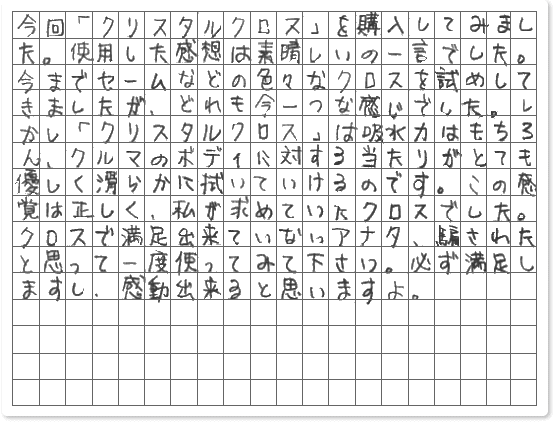 今回「クリスタルクロス」を購入してみまし
た。使用した感想は素晴しいの一言でした。
今までセームなどの色々なクロスを試めして
きましたが、どれも今一つな感じでした。し
かし「クリスタルクロス」は吸水力はもちろ
ん、クルマのボディに対する当たりがとても
優しく滑らかに拭いていけるのです。この感
覚は正しく、私が求めていたクロスでした。
クロスで満足出来ていないアナタ、騙された
と思って一度使ってみて下さい。必ず満足し
ますし、感動出来ると思いますよ。